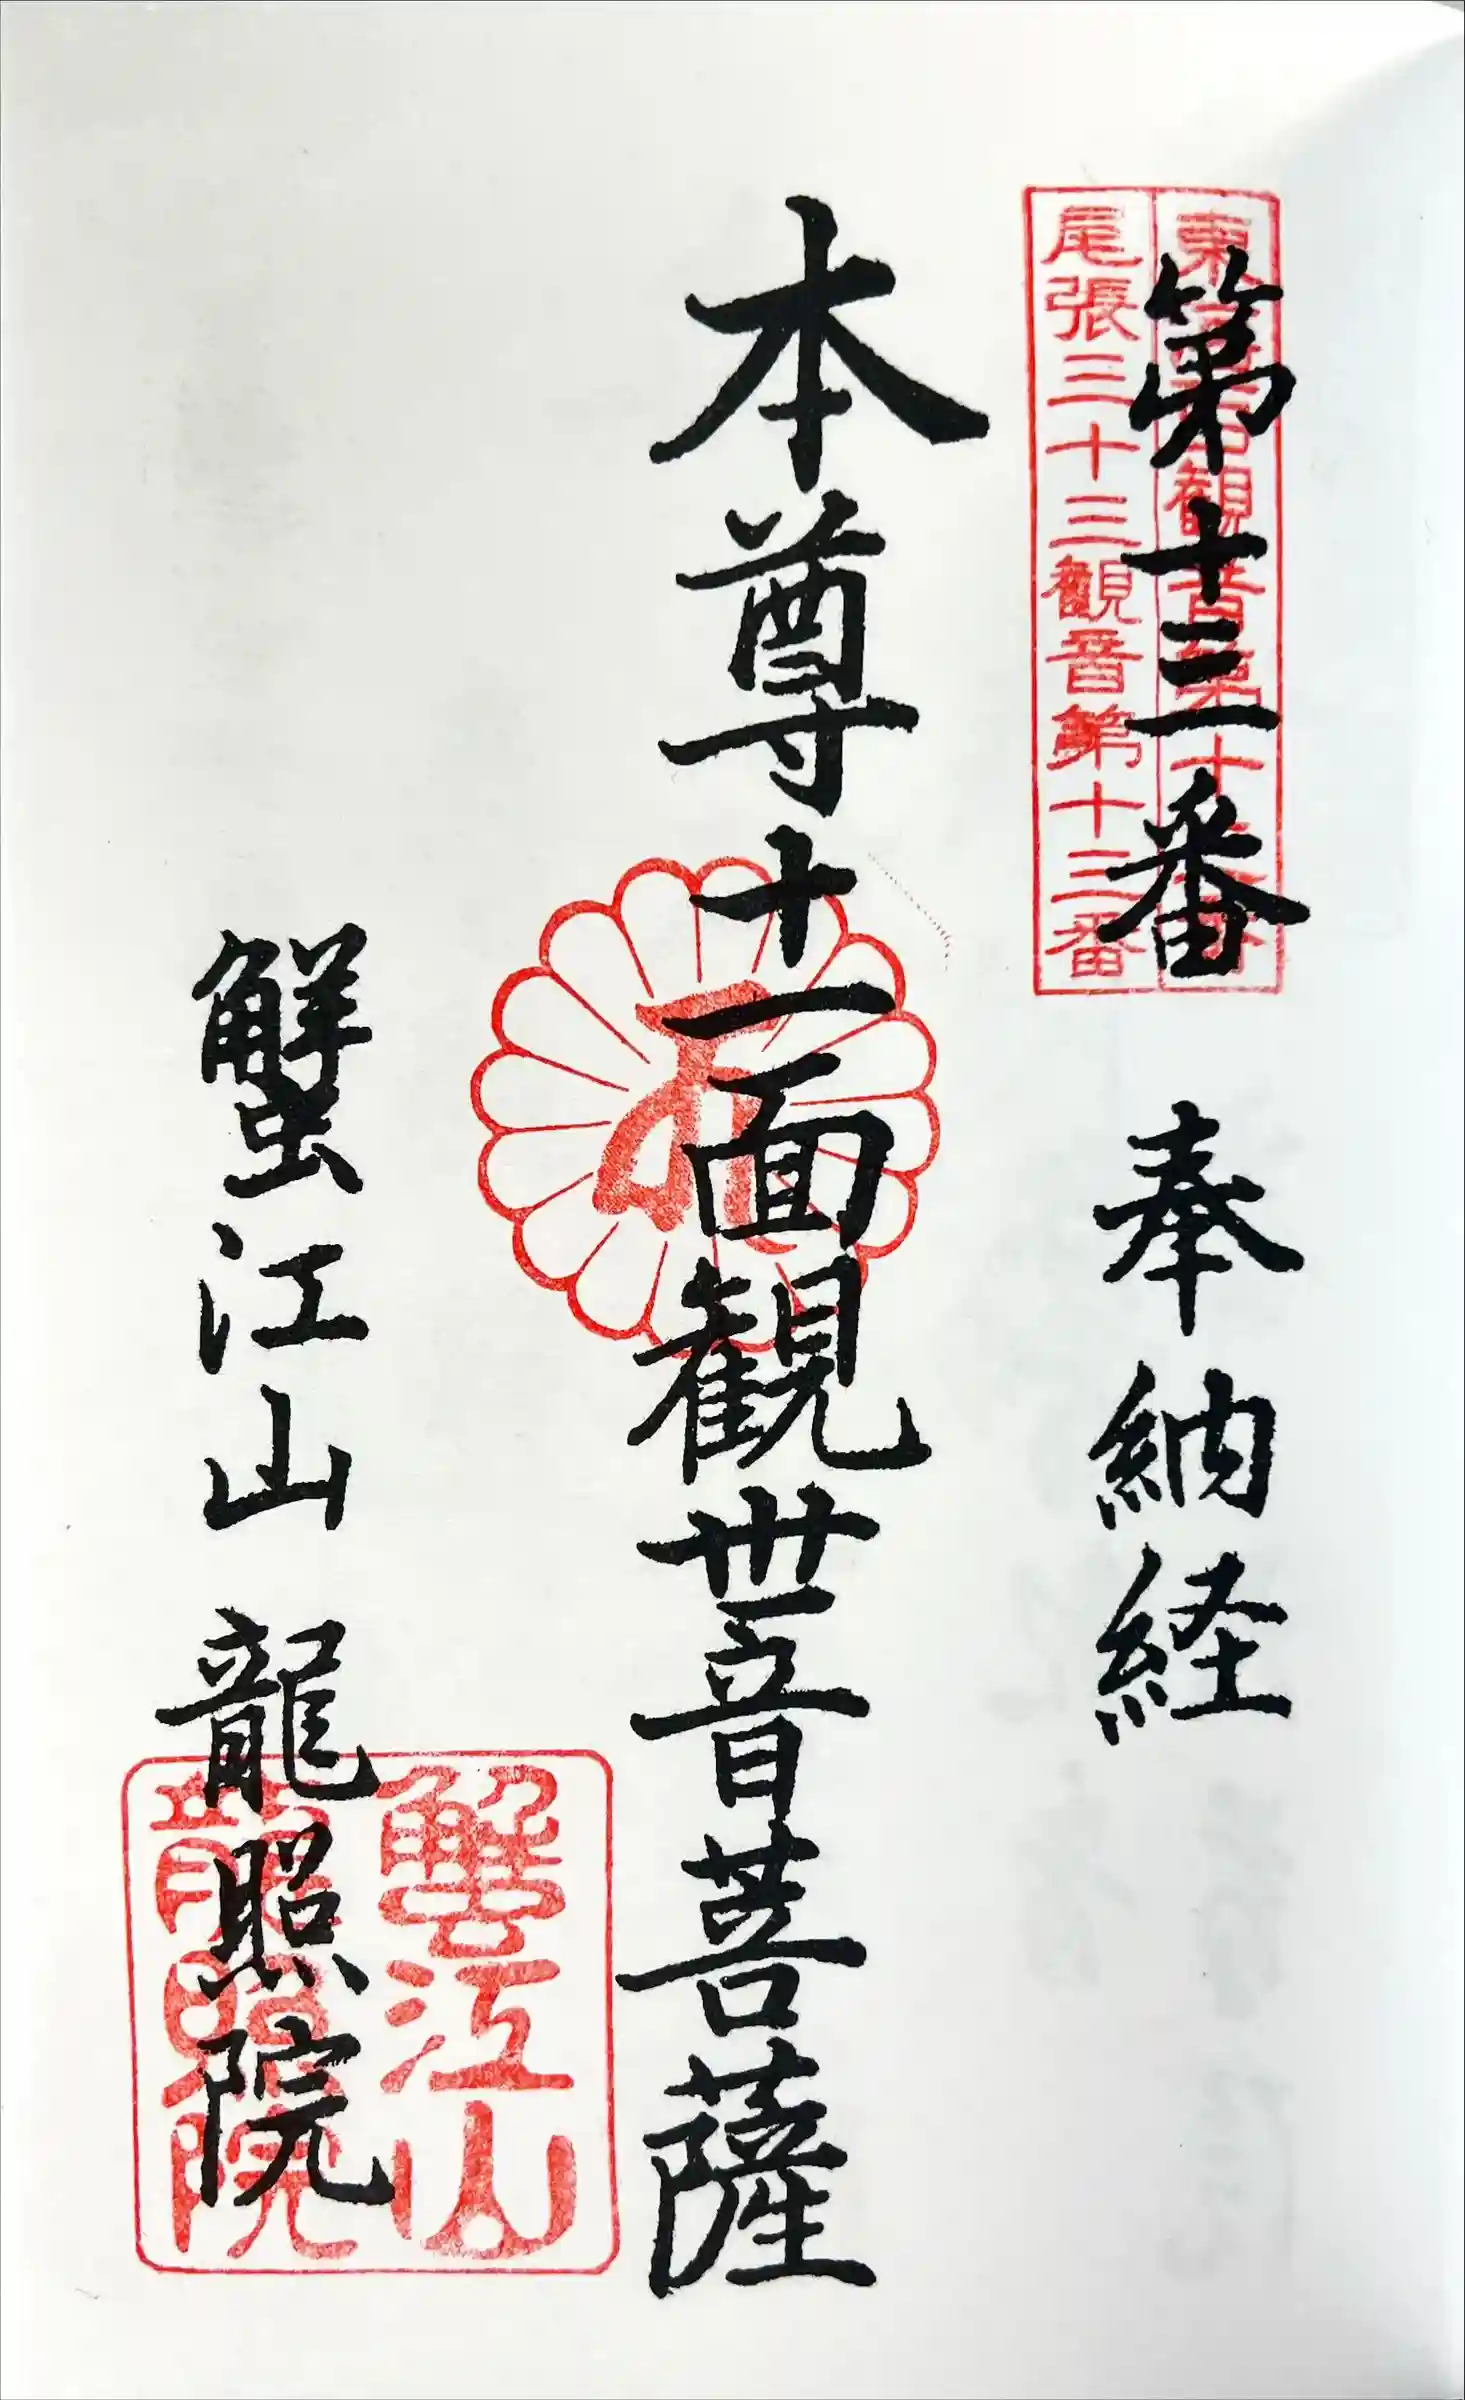 第十三番 奉納経
尾張三十三観音第十三番
本尊十一面観世音菩薩
蟹江山 龍照院
蟹江山
龍照院